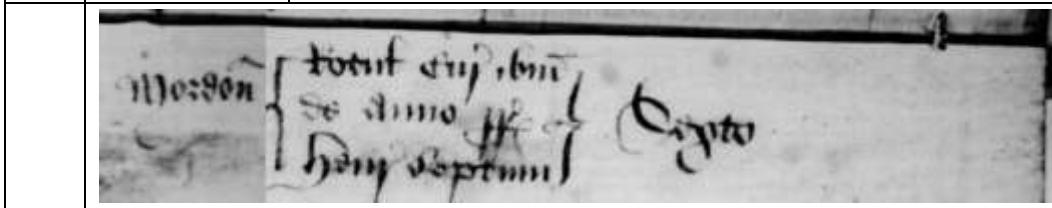 Mordon
Rotul Cur ibm
de Anno RR
Henr Septimi
Sexto